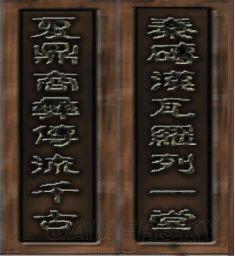 秦磚漢瓦羅列一堂
夏鼎商彝傳流千古